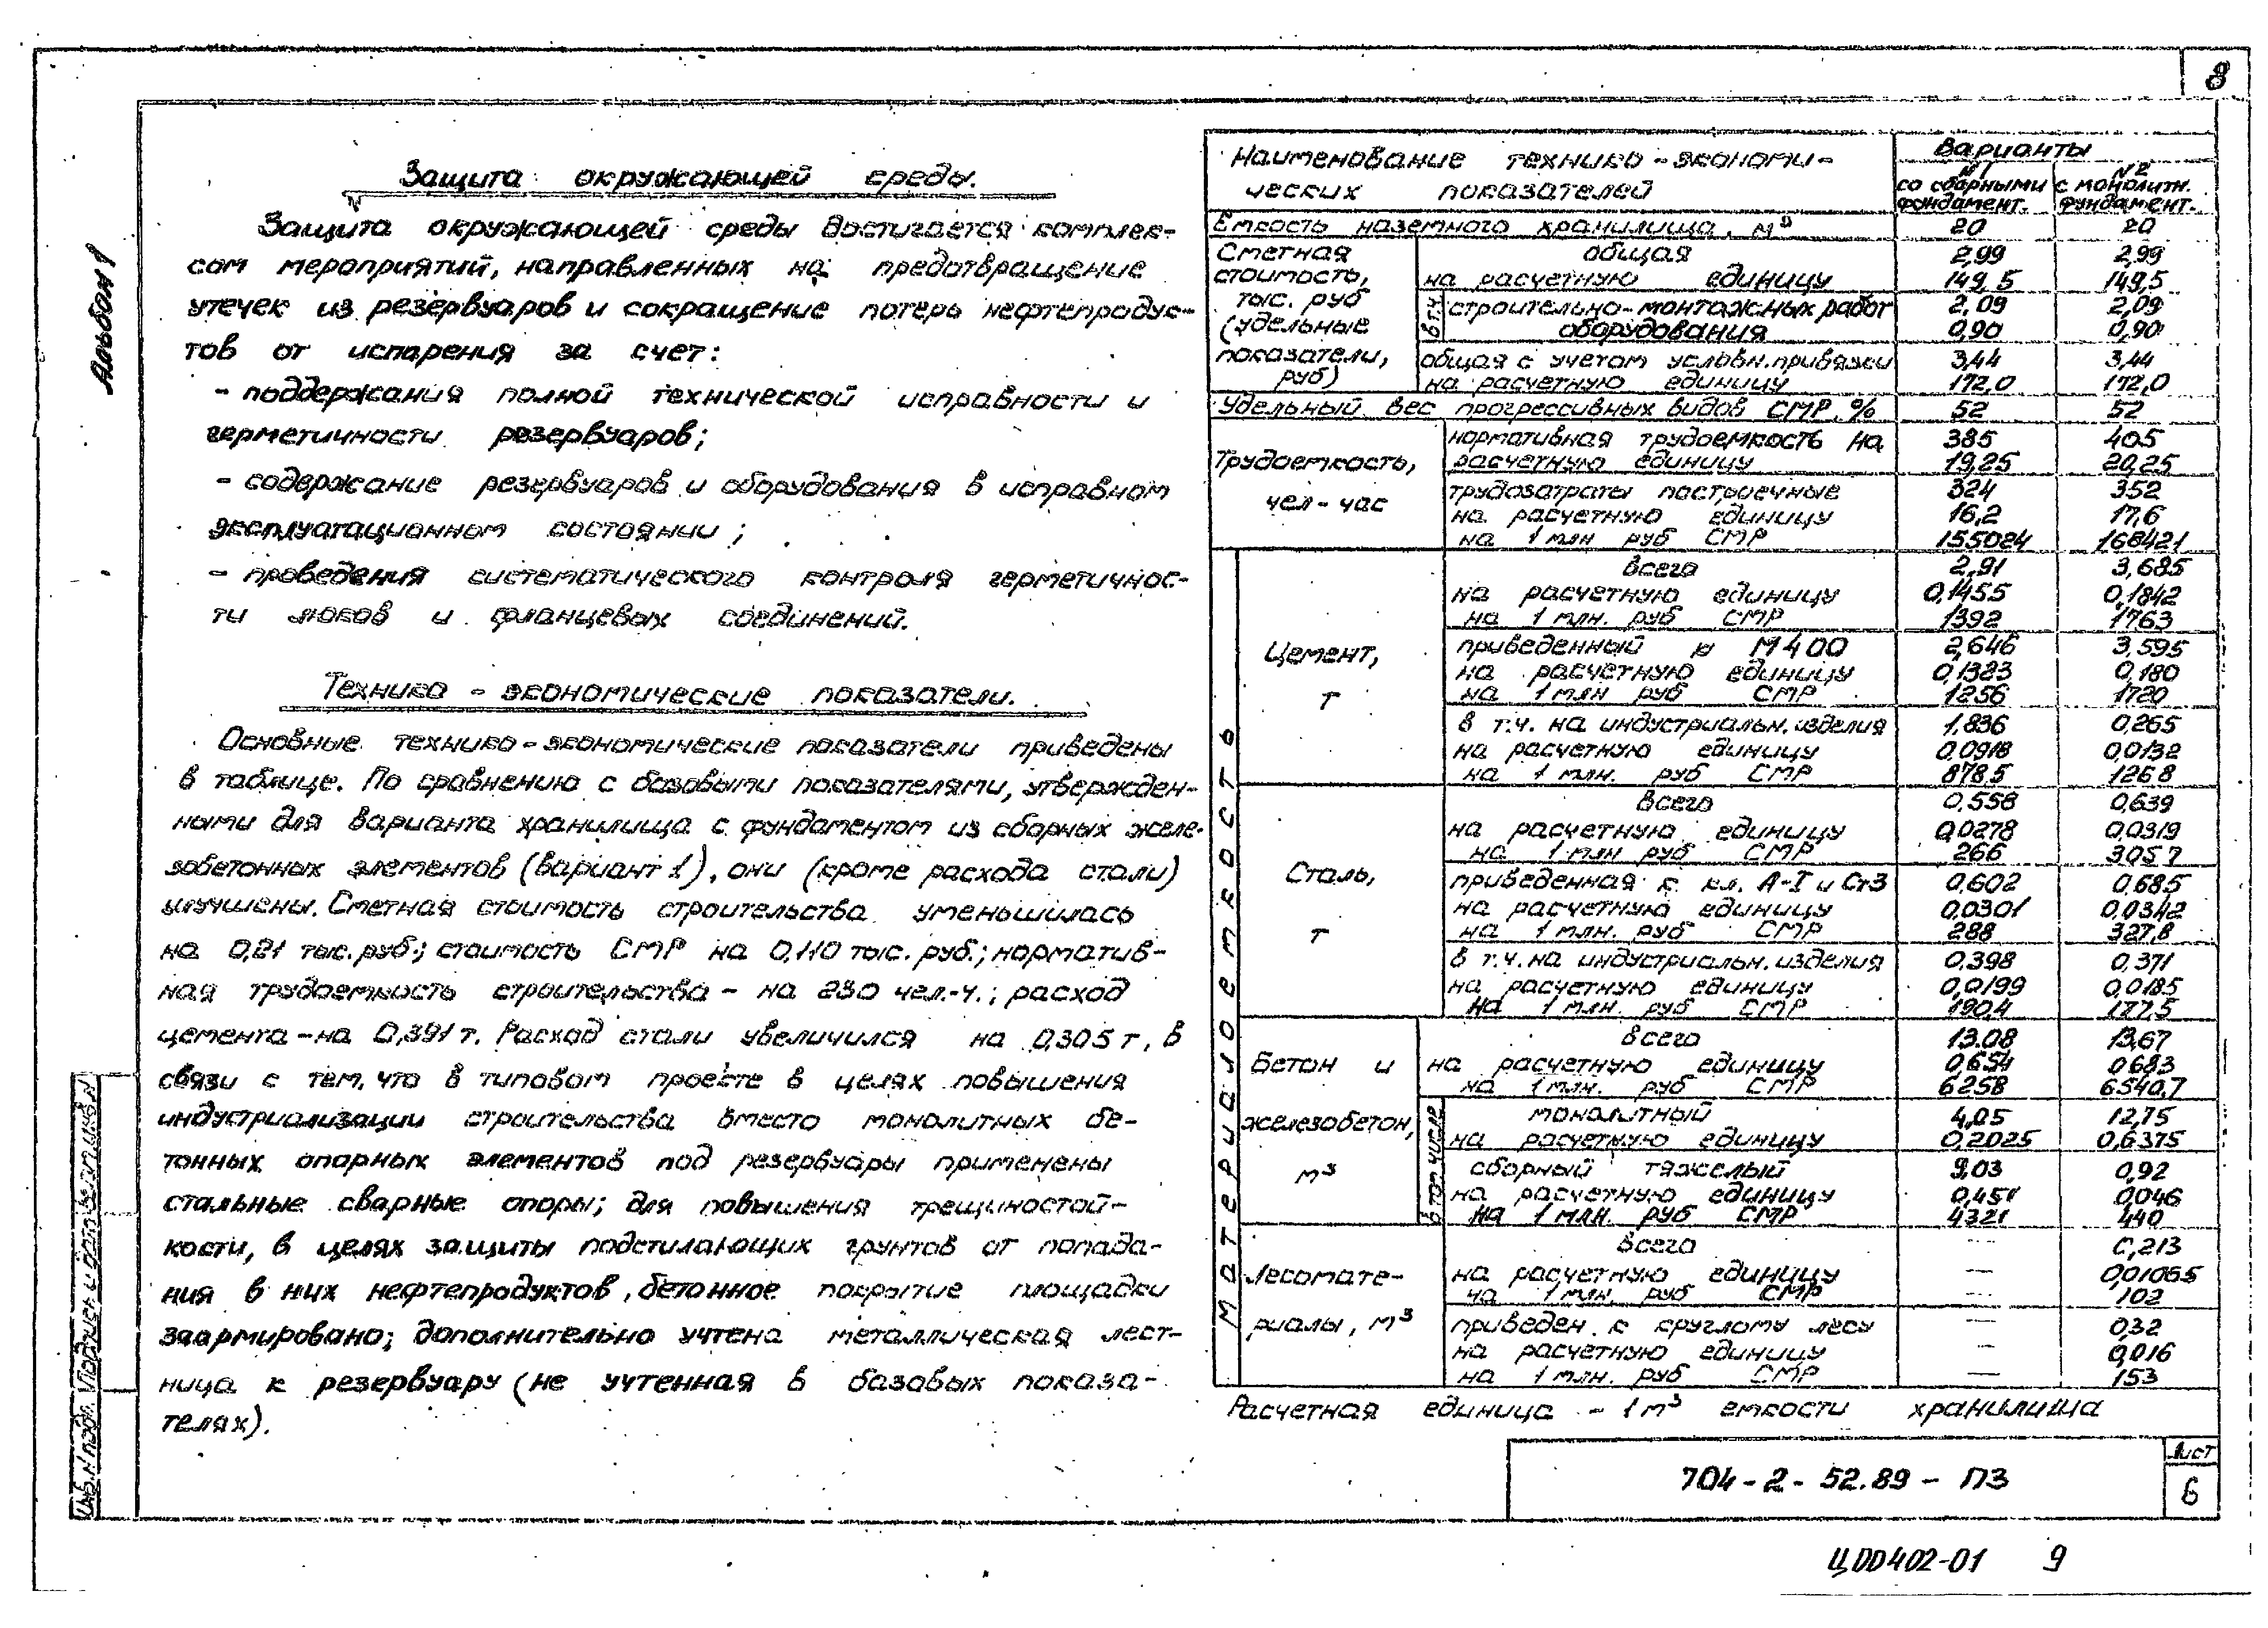 8
Альбом 1
Защита окружающей среды.
Защита окружающей среды достигается комплек-
сом мероприятий, направленных на предотвращение
утечек из резервуаров и сокращение потерь нефтепродук-
тов от испарения за счет:
- поддержания полной технической исправности и
герметичности резервуаров;
- содержание резервуаров и оборудования в исправном
эксплуатационном состоянии;
- проведения систематического контроля герметичнос-
ти люков и фланцевых соединений.
Технико-экономические показатели.
Основные технико-экономические показатели приведены
в таблице. По сравнению с базовыми показателями, утвержден-
ными для варианта хранилища с фундаментом из сборных желе-
зобетонных элементов (вариант 1), они (кроме расхода стали)
улучшены. Сметная стоимость строительства уменьшилась
на 0,21 тыс. руб.; стоимость СМР на 0,110 тыс. руб.; норматив-
ная трудоемкость строительства - на 230 чел.-ч.; расход
цемента - на 0,391 т. Расход стали увеличился на 0,305 т, в
связи с тем, что в типовом проекте в целях повышения
индустриализации строительства вместо монолитных бе-
тонных опорных элементов под резервуары применены
стальные сварные опоры; для повышения трещиностой-
кости, в целях защиты подстилающих грунтов от попада-
ния в них нефтепродуктов, бетонное покрытие площадки
заармировано; дополнительно учтена металлическая лест-
ница к резервуару (не учтенная в базовых показа-
телях).
Наименование технико-экономи-
ческих показателей
Варианты
N1 со сборными фундамент.
N2 с монолитн. фундамент.
Емкость наземного хранилища, м³ 20 20
Сметная стоимость, тыс. руб (удельные показатели, руб)
общая 2,99 2,99
на расчетную единицу 149,5 149,5
в т.ч. строительно-монтажных работ 2,09 2,09
оборудования 0,90 0,90
общая с учетом условн. привязки 3,44 3,44
на расчетную единицу 172,0 172,0
Удельный вес прогрессивных видов СМР, % 52 52
Трудоемкость, чел-час
нормативная трудоемкость на 385 405
расчетную единицу 19,25 20,25
трудозатраты построечные 324 352
на расчетную единицу 16,2 17,6
на 1 млн руб СМР 155024 168421
Материалоемкость
Цемент, т
всего 2,91 3,685
на расчетную единицу 0,1455 0,1842
на 1 млн. руб СМР 1392 1763
приведенный к М400 2,646 3,595
на расчетную единицу 0,1323 0,180
на 1 млн руб СМР 1256 1720
в т.ч. на индустриальн. изделия 1,836 0,265
на расчетную единицу 0,0918 0,0132
на 1 млн. руб СМР 878,5 126,8
Сталь, т
всего 0,558 0,639
на расчетную единицу 0,0278 0,0319
на 1 млн руб СМР 266 305,7
приведенная к кл. А-I и Ст3 0,602 0,685
на расчетную единицу 0,0301 0,0342
на 1 млн. руб СМР 288 327,8
в т.ч. на индустриальн. изделия 0,398 0,371
на расчетную единицу 0,0199 0,0185
на 1 млн. руб СМР 190,4 177,5
Бетон и железобетон, м³
всего 13.08 13,67
на расчетную единицу 0,654 0,683
на 1 млн. руб СМР 6258 6540,7
в том числе
монолитный 4,05 12,75
на расчетную единицу 0,2025 0,6375
сборный тяжелый 9,03 0,92
на расчетную единицу 0,451 0,046
на 1 млн. руб СМР 4321 440
Лесомате-
риалы, м³
всего — 0,213
на расчетную единицу — 0,01065
на 1 млн. руб СМР — 102
приведен. к круглому лесу — 0,32
на расчетную единицу — 0,016
на 1 млн. руб СМР — 153
Расчетная единица - 1 м³ емкости хранилища
704-2-52.89-ПЗ
Лист
6
Инв. N подл. Подпись и дата Взам. инв. N
Ц00402-01 9